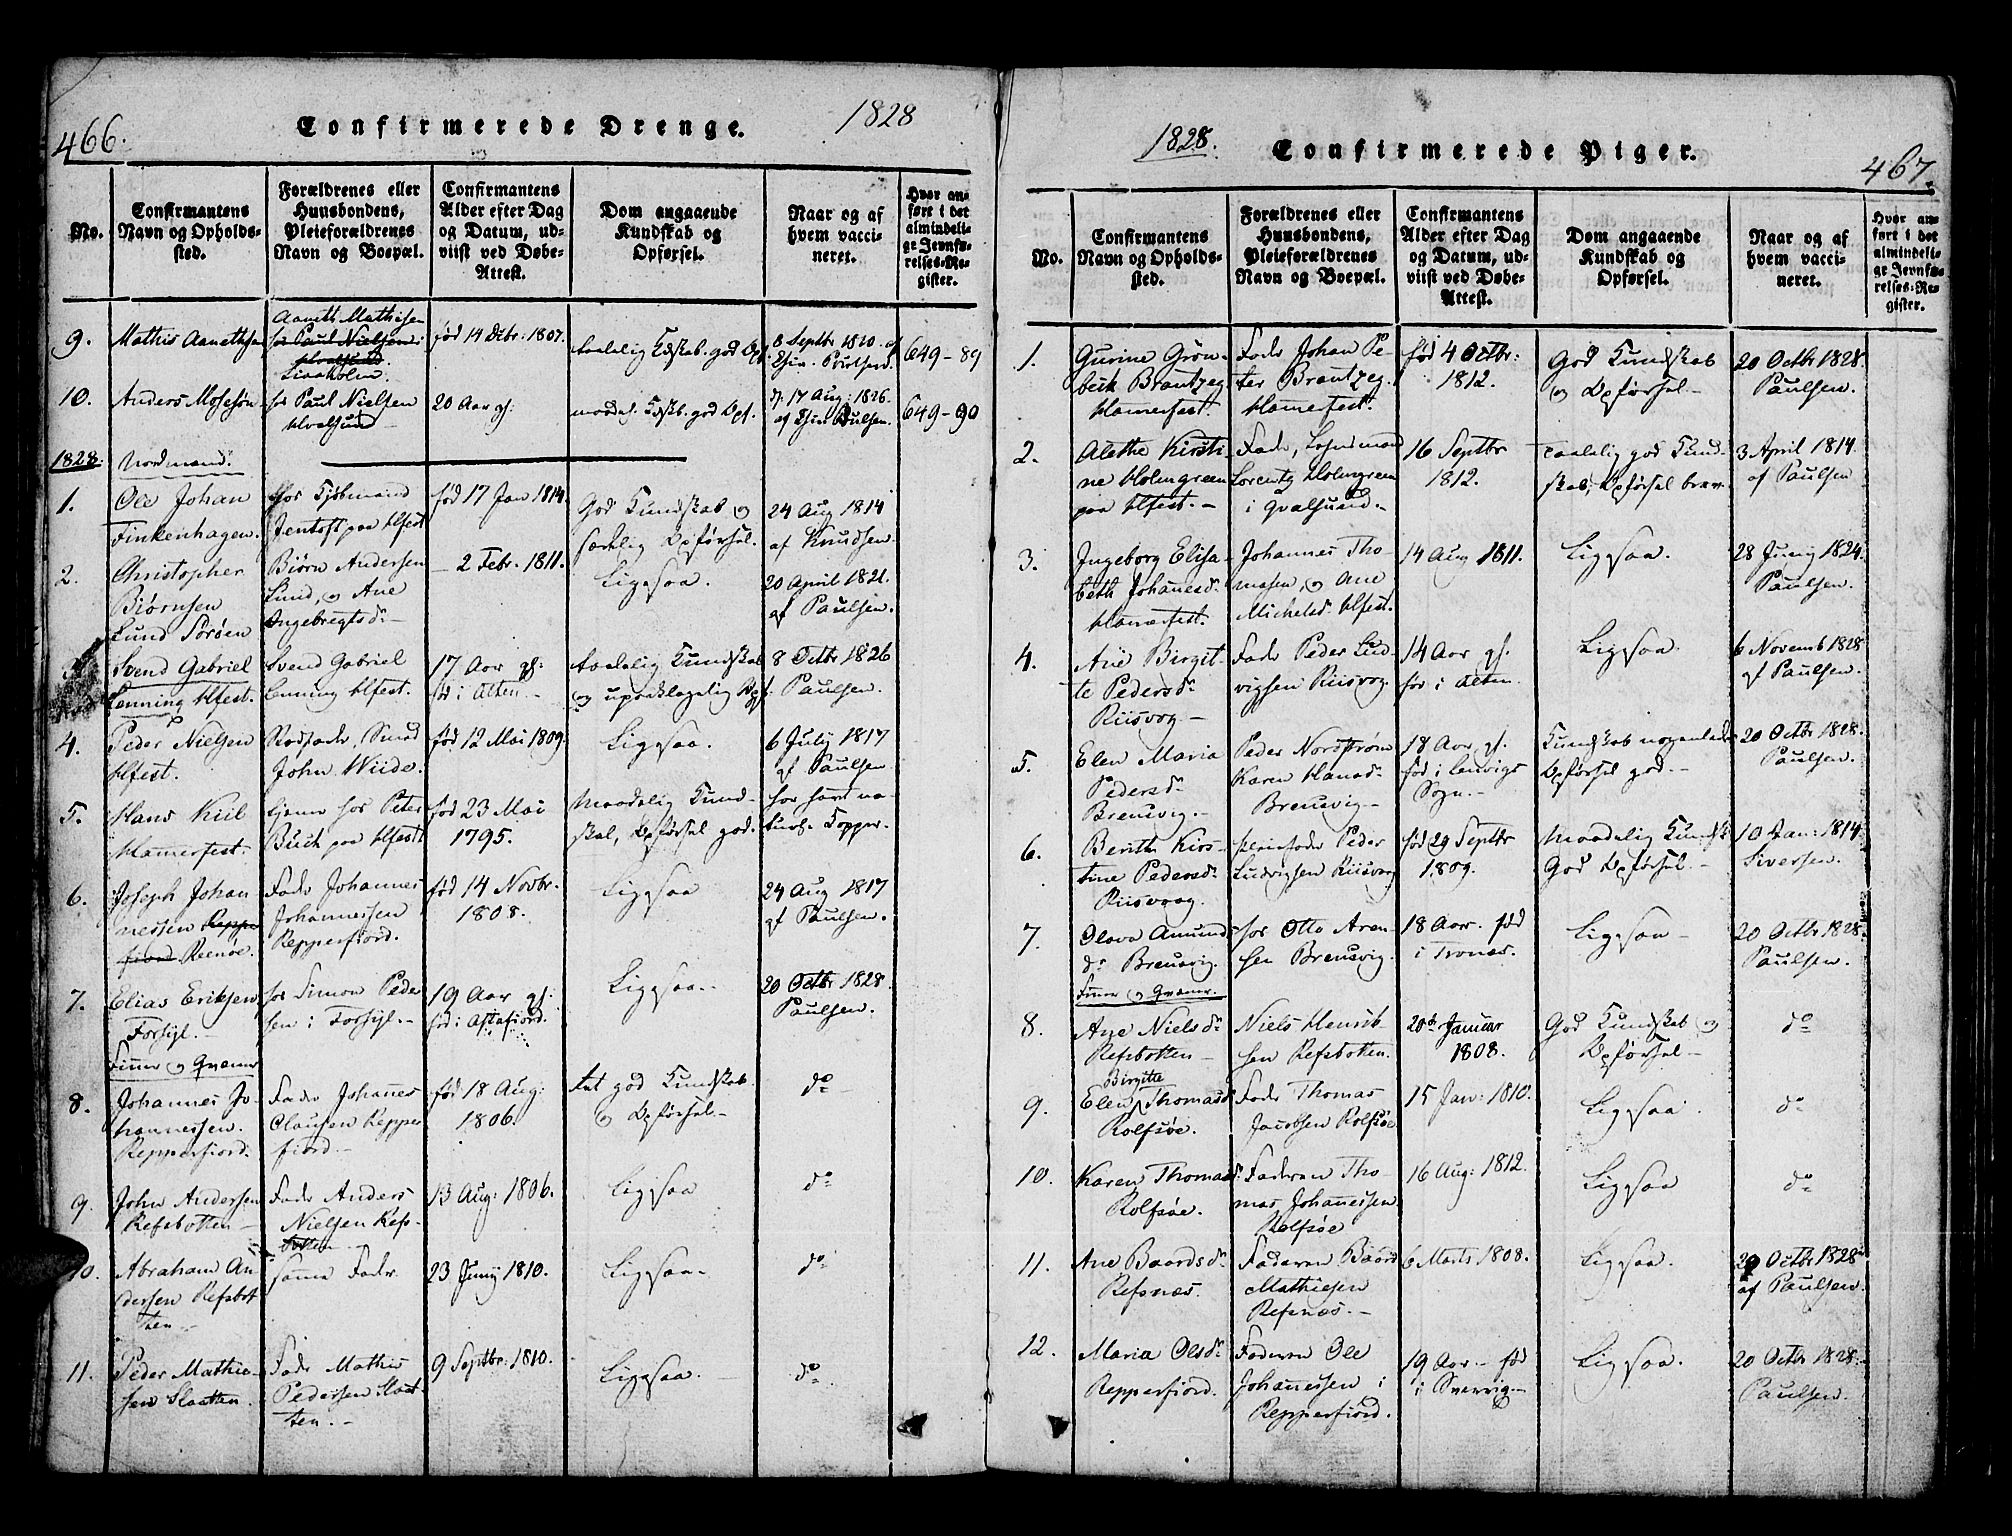 466.
Confirmerede Drenge.
1828
No.
Confirmantens
Navn og Opholds-
sted.
Forældrenes eller
Huusbondens,
Pleieforældrenes
Navn og Boepæl.
Confirmantens
Alder efter Dag
og Datum, ud-
viist ved Døbe-
Attest.
Dom angaaende
Kundskab og
Opførsel.
Naar og af
hvem vacci-
neret.
Hvor an-
ført i det
almindeli-
ge Jevnfø-
relses-Re-
gister.
9.
Mathis Aanethsen
Aaneth Mathisen
hos Paul Nielsen
Hvalsund
født 14 Dcbr: 1807.
taalelig Kdskab. god Opf.
8 Septbr 1820. af
649-89
10.
Anders Mosesøn
hos Paul Nielsen
Hvalsund
20 Aar gl:
maadel. Kdskb. god Opf.
d. 17 Aug: 1826.
649-90
1828.
Nordmænd.
1.
Ole Johan
Finkenhagen.
hos Kjøbmand
Jentoft paa Hfest
fød 17 Jan 1814.
God Kundskab og
sædelig Opførsel.
24 Aug 1814
af Knudsen.
2.
Christopher
Biørnsen
Lund Sørøen
Biørn Andersen
Lund, og Ane
Ingebregtsdr
- 2 Febr. 1811.
Ligesaa.
20 April 1821.
af Paulsen.
Svend Gabriel
Lenning Hfest.
Svend Gabriel
Lenning Hfest.
17 Aar gl:
fød i Alten.
taalelig Kundskab
og upaaklagelig Opf.
8 Octbr 1826
Paulsen.
4.
Peder Nielsen
Hfest.
Stedfader, Smed
John Wiide.
fød 12 Mai 1809.
Ligesaa.
6 July 1817
af Paulsen
5.
Hans Kiil
Hamerfest.
tjener hos Peter
Buch paa Hfest
fød 23 Mai
1795.
Maadelig Kund-
skab, Opførsel god.
har havt na-
turl. Kopper.
6.
Joseph Johan
nessen Repper
fiord Reenøe.
Fader Johannes
Johannessen
Repperfiord.
fød 14 Novbr.
1808.
Ligesaa
24 Aug 1817
af Paulsen.
7.
Elias Eriksen
Forsøl.
hos Simon Peder
sen i Forsøl.
19 Aar gl:
fød i Astafiord.
Ligesaa.
20 Octbr 1828.
Paulsen.
Finner og Qvæner
8.
Johannes Jo-
hannessen.
Repperfiord.
Fader Johanes
Clausen Repper
fiord.
fød 18 Aug:
1806.
tet god Kundskab
og Opførsel.
do
9.
John Andersen
Refsbotten
Fader Anders
Nielsen Refs-
botten
13 Aug: 1806.
Ligesaa
do
10.
Abraham An-
dersen Refsbot
ten
samme Fader
23 Juny 1810.
Ligesaa.
do
11.
Peder Mathie-
sen Slaatten.
Fader Mathis
Pedersen Slaat-
ten.
9 Septbr. 1810.
Ligesaa.
do
1828.
Confirmerede Piger.
467.
No.
Confirmantens
Navn og Opholds-
sted.
Forældrenes eller
Huusbondens,
Pleieforældrenes
Navn og Boepæl.
Confirmantens
Alder efter Dag
og Datum, ud-
viist ved Døbe-
Attest.
Dom angaaende
Kundskab og
Opførsel.
Naar og af
hvem vacci-
neret.
Hvor an-
ført i det
almindeli-
ge Jevnfø-
relses-Re-
gister.
1.
Gurine Grøn-
bek Brantzeg.
Hamerfest.
Fader Johan Pe-
ter Brantzeg.
Hamerfest.
fød 4 Octbr:
1812.
God Kundskab
og Opførsel
20 Octbr 1828.
Paulsen.
2.
Alethe Kirsti-
ne Holmgreen
paa Hfest.
Fader, Lehnsmand
Lorentz Holmgreen
i Qvalsund.
16 Septbr
1812.
Taalelig god Kund-
skab, Opførsel brav
3 April 1814.
af Paulsen
3.
Ingeborg Elisa-
beth Johanesdr
Hamerfest.
Johannes Tho-
masen, og Ane
Michelsdr Hfest.
14 Aug 1811.
Ligesaa.
28 Juny 1824.
Paulsen.
4.
Ane Birgit-
te Pedersdr
Riisvog
Fader Peder Lud-
vigsen Riisvog
14 Aar gl.
fød i Alten.
Ligesaa.
6 Novemb 1828
af Paulsen.
5.
Elen Maria
Pedersdr
Breuvig.
Peder Nordstrøm
Karen Hansdr
Breuvig
18 Aar gl.
fød i Lenvigs
Sogn.
Kundskab nogenlede
Opførsel god.
20 Octbr 1828.
Paulsen.
6.
Berith Kirs-
tine Pedersdr
Riisvog.
Pleiefader Peder
Ludvigsen Riisvog
fød 29 Septbr
1809.
Maadelig Kundsk.
God Opførsel
10 Jan: 1814.
Siversen.
7.
Olava Amunds
dr Breuvig.
hos Otto Aren-
sen Breuvig.
18 Aar. fød
i Tronæs.
Ligesaa
20 Octbr 1828.
Paulsen.
Finner og Qvæner.
8.
Ane Nielsdr
Refsbotten
Niels Henrik-
sen Refsbotten.
20de Januar
1808.
God Kundskab og
Opførsel
do
9.
Birgitte
Elen Thomasdr
Rolfsøe.
Fader Thomas
Jacobsen Rolfsøe
15 Jan: 1810.
Ligesaa.
do
10.
Karen Thomasdr
Rolfsøe.
Faderen Tho-
mas Johannessen
Rolfsøe
16 Aug: 1812.
Ligesaa
do
11.
Ane Baardsdr
Refsnæs.
Faderen Baard
Mathiesen
Refsnæs.
6 Marts 1808.
Ligesaa.
20 Octbr 1828
af Paulsen.
12.
Maria Olsdr
Repperfiord.
Faderen Ole
Johannessen i
Repperfiord.
19 Aar fød
i Sverrig
Ligesaa.
20 Octbr 1828.
Paulsen.